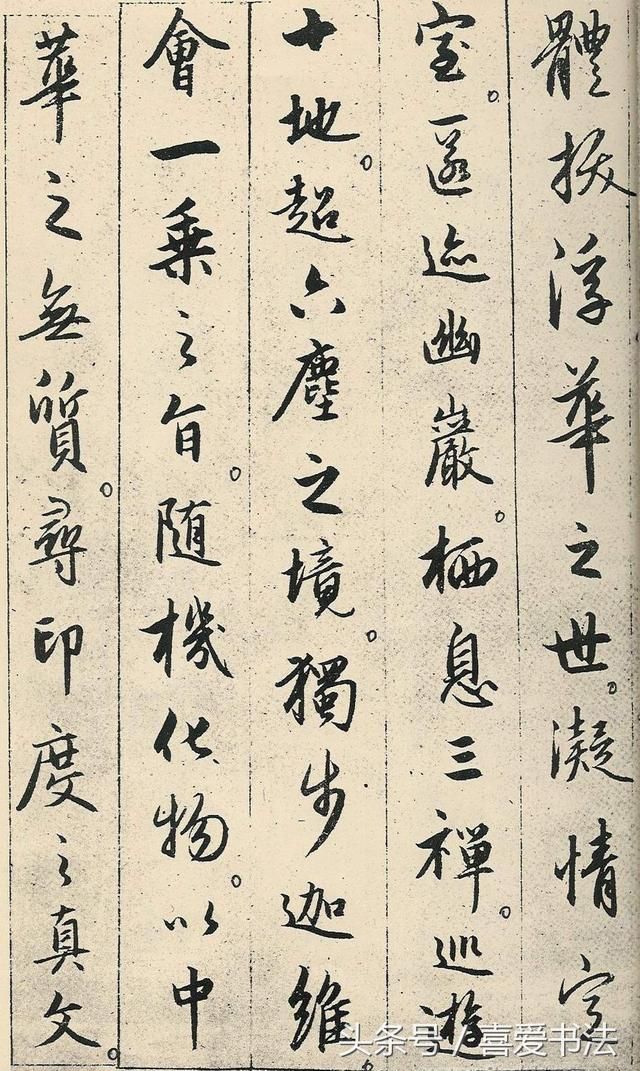 體拔浮華之世。凝情定
室。匿迹幽巖。栖息三禪。巡遊
十地。超六塵之境。獨步迦維。
會一乘之旨。随機化物。以中
華之無質。尋印度之真文。
头条号 / 喜爱书法